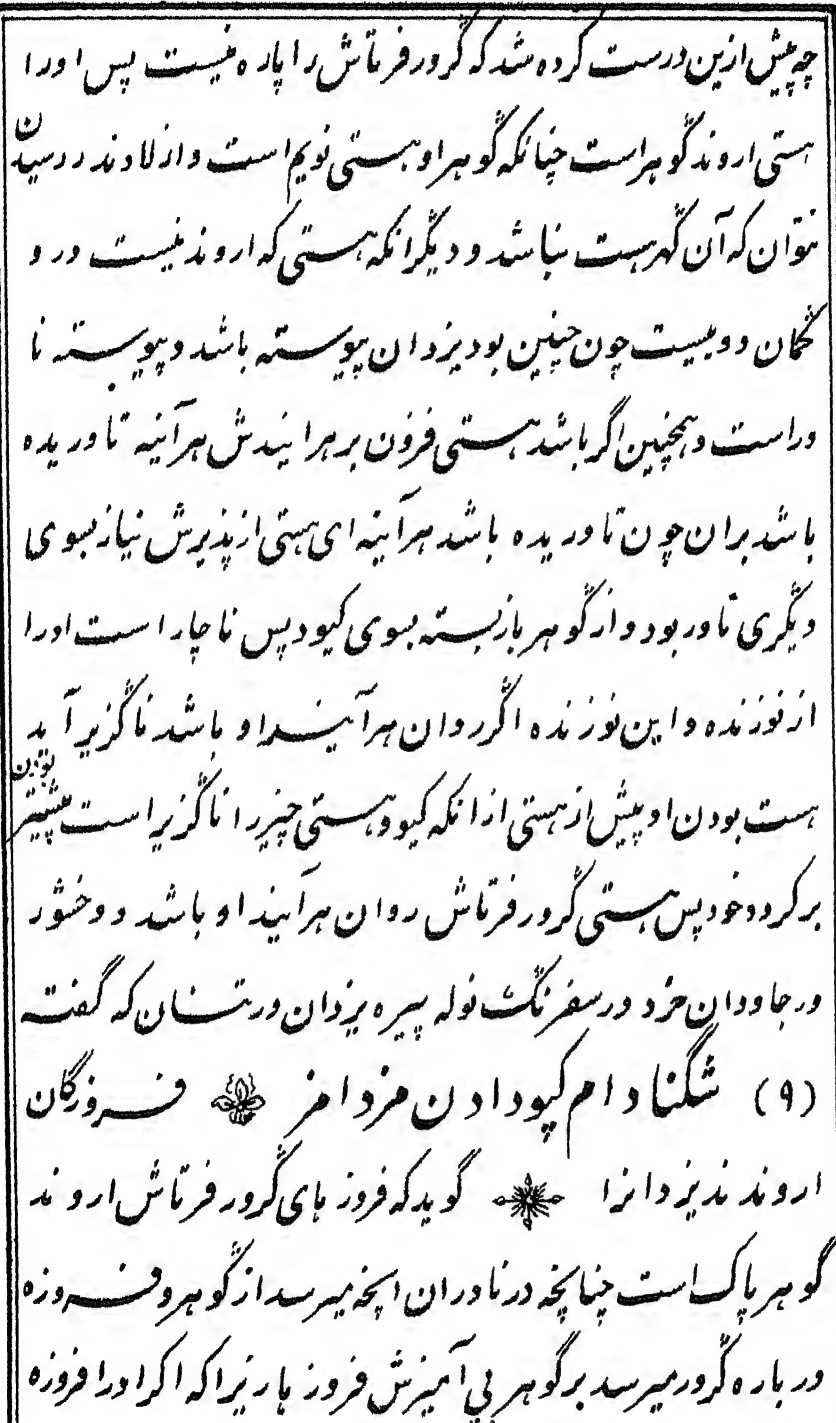 چه پیش ازین درست کرده شد که گرور فرتاش را پاره نیست پس اورا
هستی اروند گوهر است چنانکه گوهر او هستی نویم است و از لاد ندر رسیدن
نتوان که آن گهر هست نباشد و دیگر انکه هستی که اروند نیست در و
گمان دوییست چون چنین بود یزدان پیوسته باشد و پیوسته نا
وراست و همچنین اگر باشد هستی فزون بر هرایندش هرآینه تاوریده
باشد بران چون تاوریده باشد هرآینه ای هستی از پذیرش نیاز بسوی
دیگری تاور بود و از گوهر بازبسته بسوی کیود پس ناچار است اورا
از نوزنده و این نوزنده اگر روان هرآینداو باشد ناگزیر آید
هست بودن او پیش از هستی ازانکه کیود هستی چیز را ناگزیر است پیشتر بودن
بر کرود خود پس هستی گرور فرتاش روان هرآیند او باشد و وخشور
در جاودان خرد در سفرنگ نوله پیره یزدان در تسنان که گفته
(۹) شگنادام کپودادن مزدامز فروزگان
اروند ندیزدانرا گوید که فروز های گرور فرتاش اروند
گوهر پاک است چنانچه در نادران انچه میرسد از گوهر و فروزه
در باره گرور میرسد بر گوهر بی آمیزش فروز ها زیرا که اگر اورا فروزه